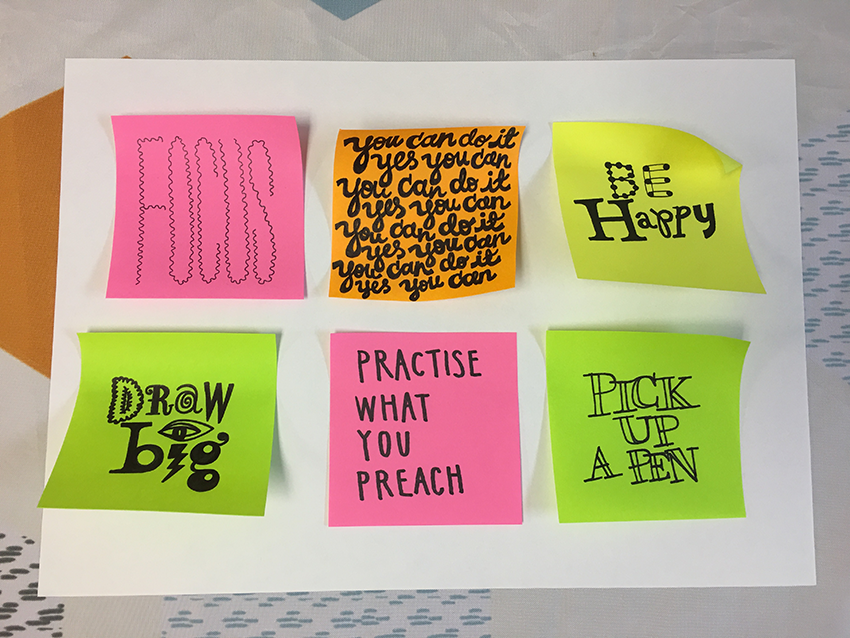 FOCUS
you can do it
yes you can
you can do it
yes you can
you can do it
yes you can
you can do it
yes you can
BE
Happy
DRaW
big
PRACTISE
WHAT
YOU
PREACH
PICK
UP
A PEN